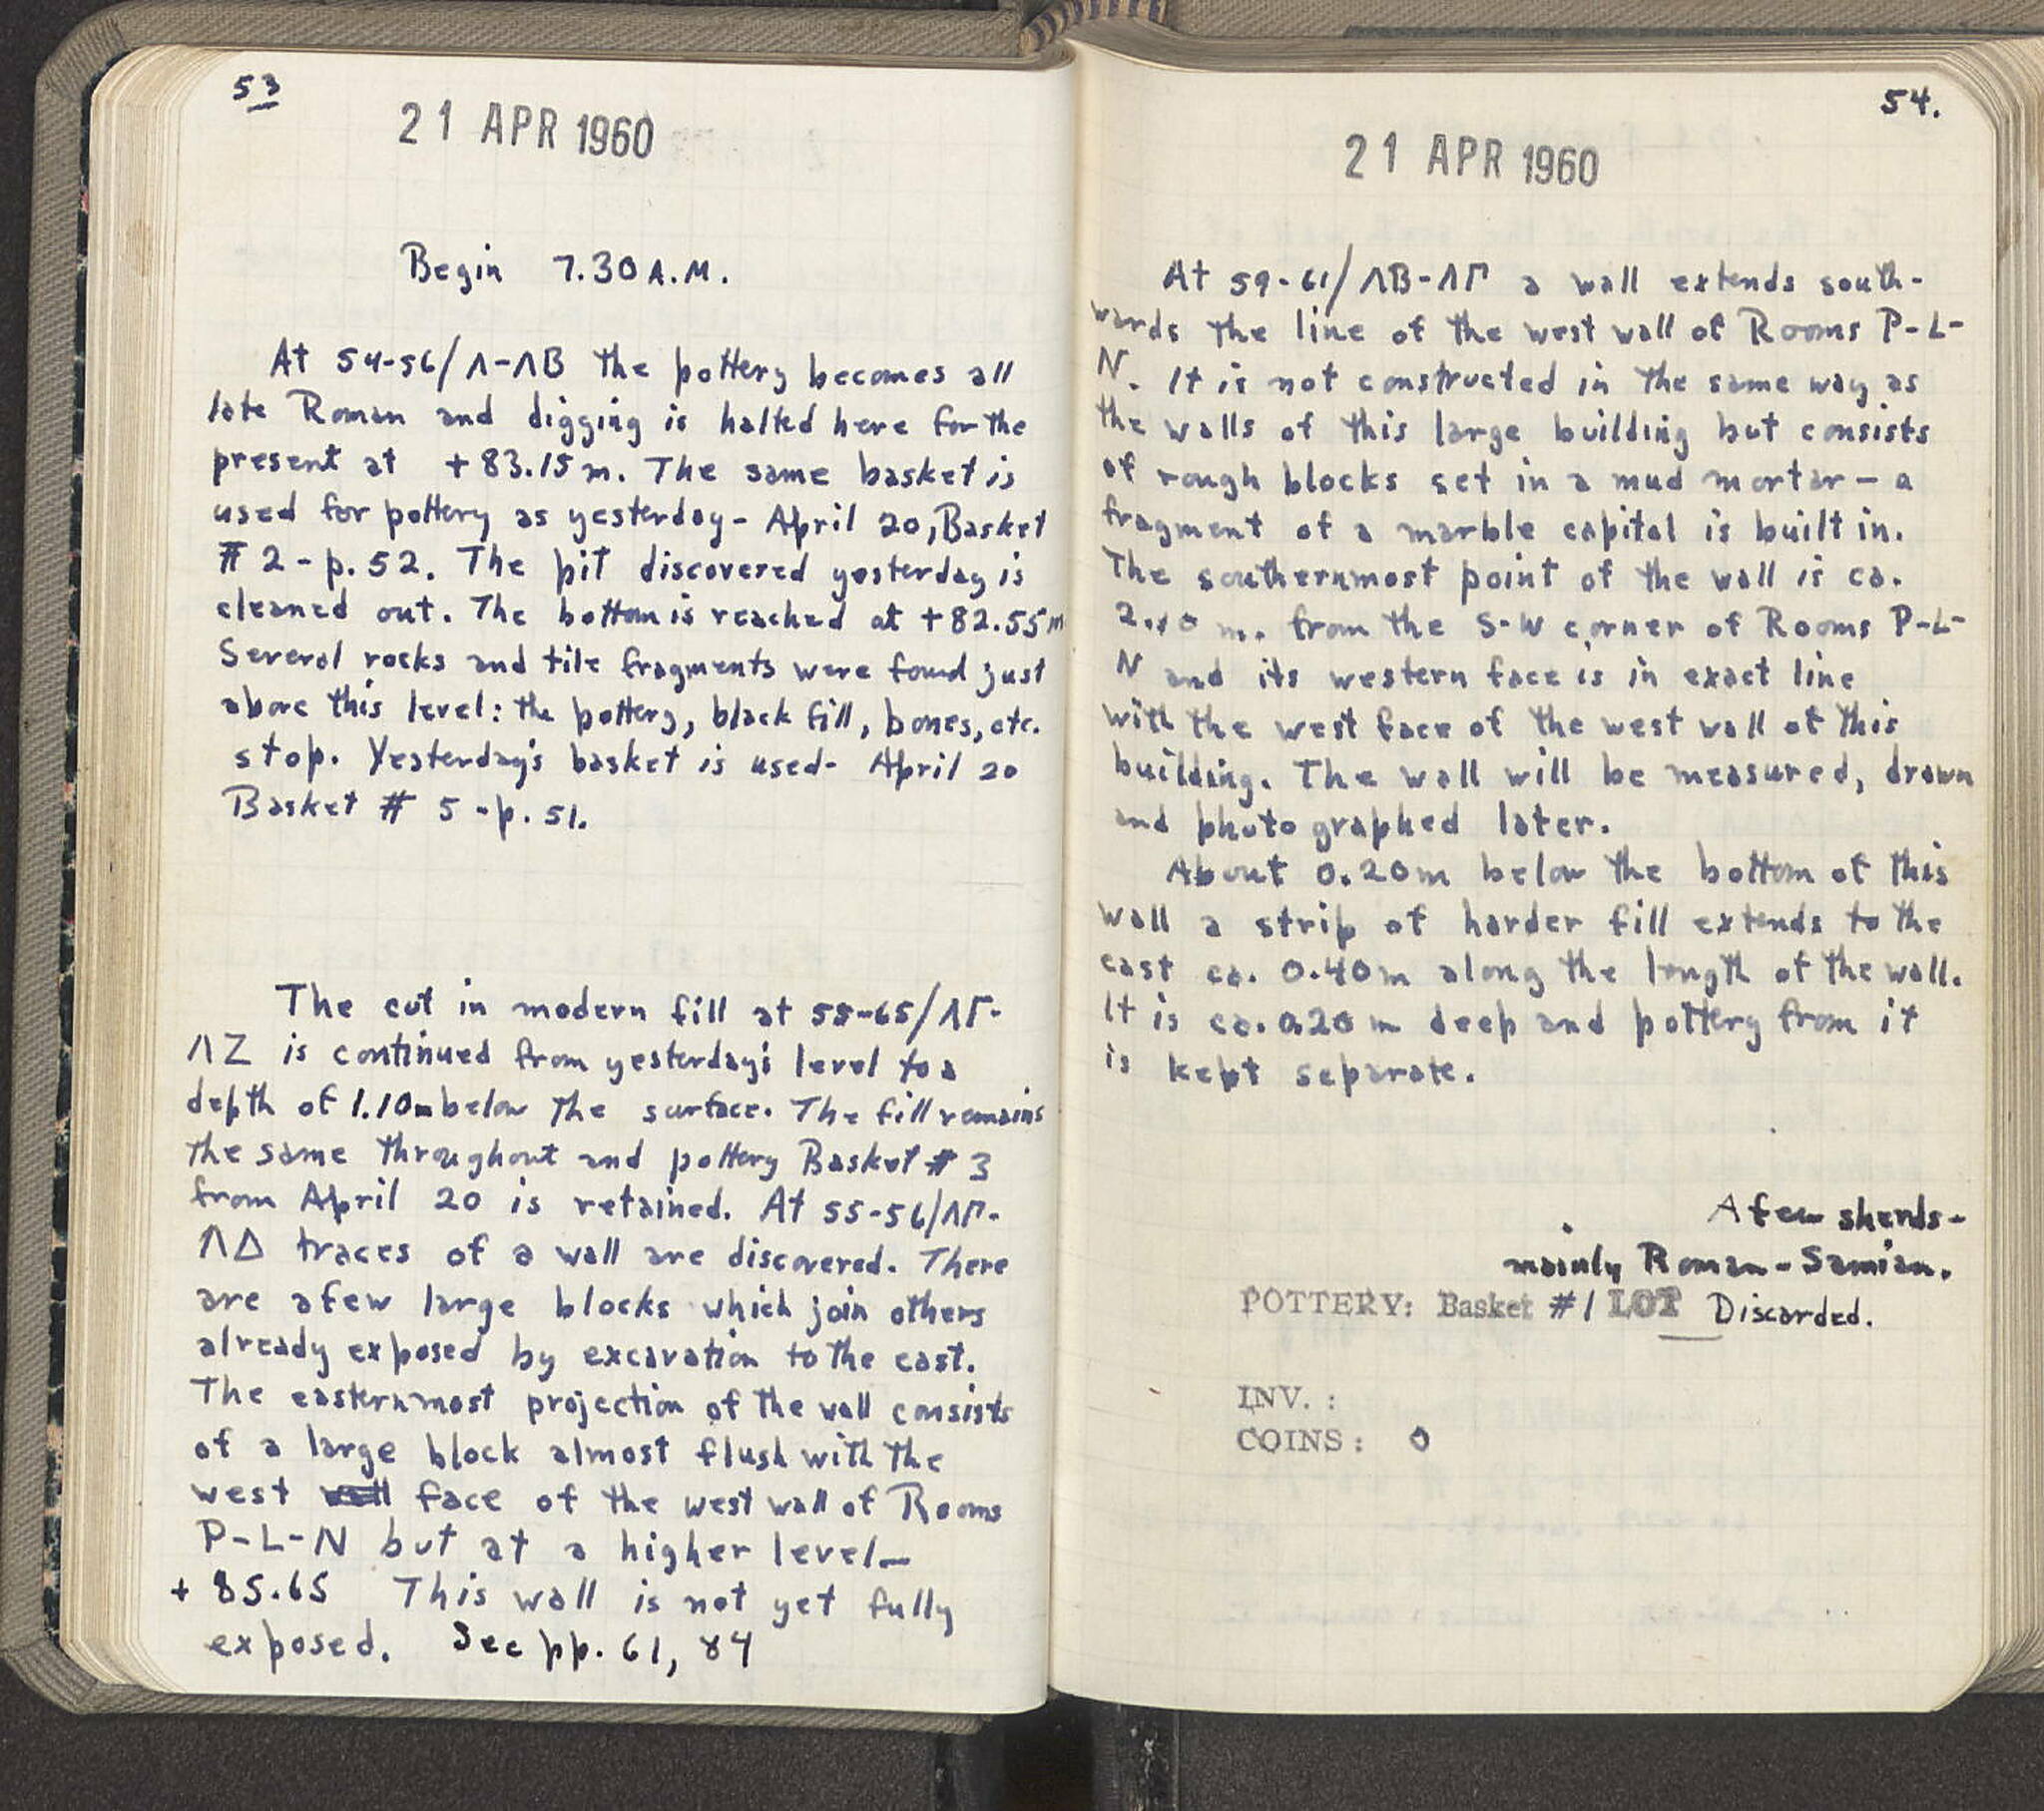 53
21 APR 1960
Begin 7.30 A.M.
At 54-56/Λ-ΛΒ the pottery becomes all
late Roman and digging is halted here for the
present at +83.15 m. The same basket is
used for pottery as yesterday - April 20, Basket
# 2 - p. 52. The pit discovered yesterday is
cleaned out. The bottom is reached at +82.55 m
Several rocks and tile fragments were found just
above this level: the pottery, black fill, bones, etc.
stop. Yesterday's basket is used - April 20
Basket # 5 - p. 51.
The cut in modern fill at 55-65/ΛΓ-
ΛΖ is continued from yesterday's level to a
depth of 1.10m below the surface. The fill remains
the same throughout and pottery Basket # 3
from April 20 is retained. At 55-56/ΛΓ-
ΛΔ traces of a wall are discovered. There
are a few large blocks which join others
already exposed by excavation to the east.
The easternmost projection of the wall consists
of a large block almost flush with the
west face of the west wall of Rooms
P-L-N but at a higher level -
+ 85.65 This wall is not yet fully
exposed. See pp. 61, 84
54.
21 APR 1960
At 59-61/ΛΒ-ΛΓ a wall extends south-
wards the line of the west wall of Rooms P-L-
N. It is not constructed in the same way as
the walls of this large building but consists
of rough blocks set in a mud mortar - a
fragment of a marble capital is built in.
The southernmost point of the wall is ca.
m. from the S-W corner of Rooms P-L-
N and its western face is in exact line
with the west face of the west wall of this
building. The wall will be measured, drawn
and photographed later.
About 0.20m below the bottom of this
wall a strip of harder fill extends to the
east ca. 0.40m along the length of the wall.
It is ca. 0.20 m deep and pottery from it
is kept separate.
A few sherds -
mainly Roman - Samian.
POTTERY: Basket #1 LOT Discarded.
INV. :
COINS : 0